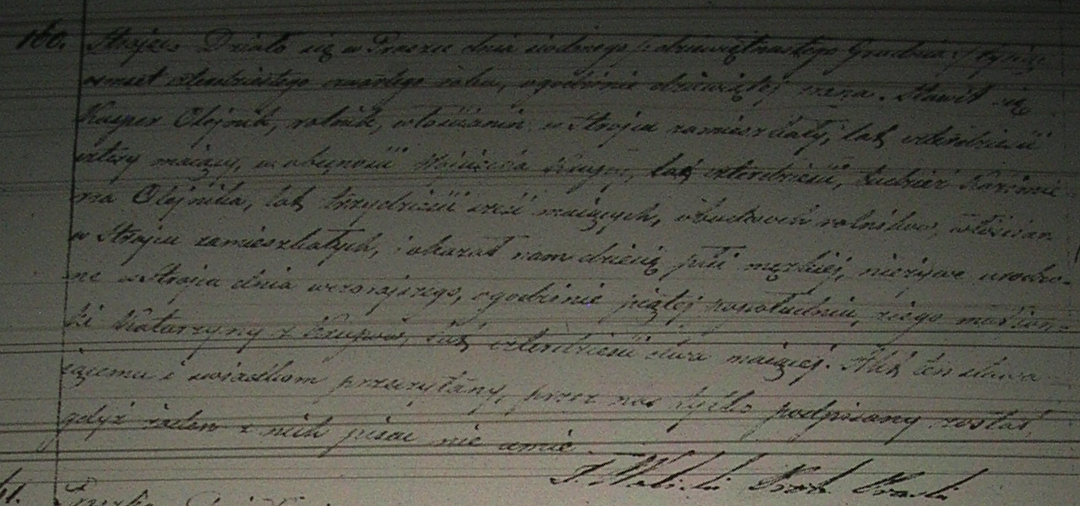 160. Strojec. Działo się w Praszce dnia siódmego /: dziewiętnastego Grudnia :/ tysiąc
osmset czterdziestego czwartego roku, o godzinie dziewiątej zrana. Stawił się
Kasper Olejnik, rolnik, włościanin w Strojcu zamieszkały, lat czterdzieści
cztery maiący, w obecności Wojciecha lat czterdzieści, tudzież Kazimie-
rza Olejnika, lat trzydzieści sześć maiących, obudwóch rolników, włościan
w Strojcu zamieszkałych, i okazał nam dziecię płci męzkiej, nieżywe urodzo-
ne w Strojcu dnia wczorajszego, o godzinie piątej popołudniu, z iego małżon-
ki Katarzyny z Krupów, lat czterdzieści dwa maiącej. Akt ten stawa-
iącemu i świadkom przeczytany, przez nas tylko podpisany został,
gdyż żaden z nich pisać nie umie.